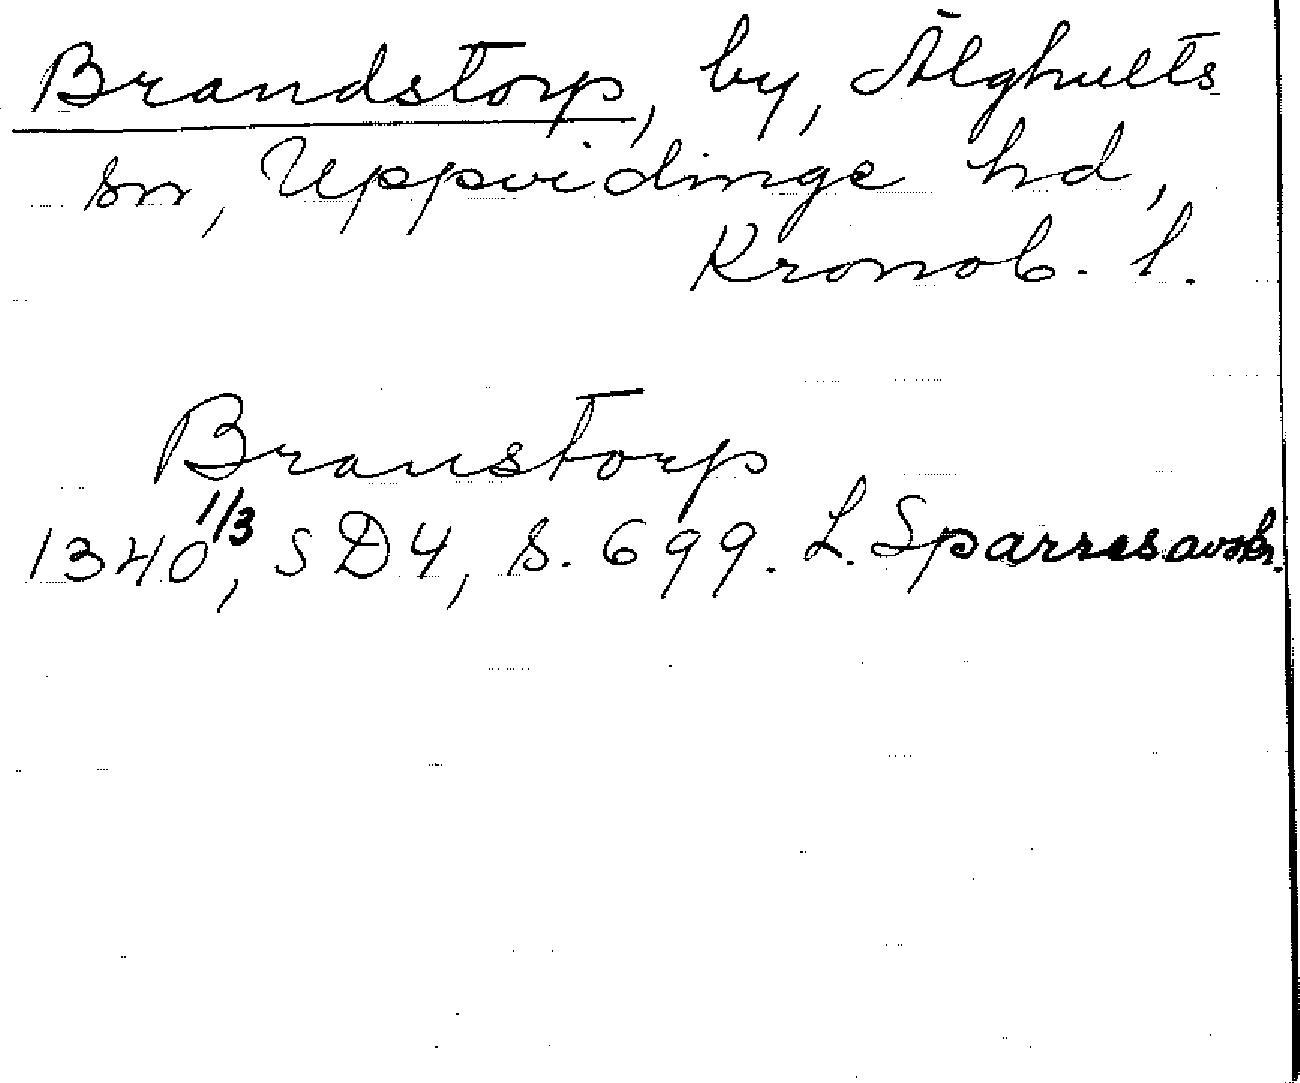 Brandstorp, by, Älghults
sn, Uppvidinge hd,
Kronob. l.
Branstorp
1340 1/3, SD4, s. 699. L. Sparres avskr.